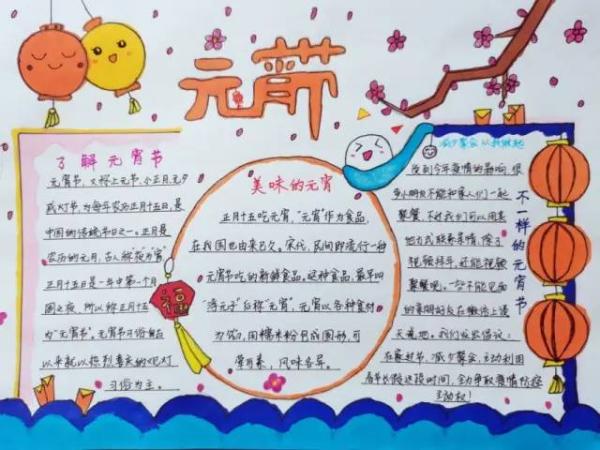 元宵节
了解元宵节
元宵节,又称上元节、小正月、元夕
或灯节,为每年农历正月十五日,是
中国的传统节日之一。正月是
农历的元月,古人称“夜”为“宵”
正月十五日是一年中第一个月
圆之夜,所以称正月十五
为“元宵节”。元宵节习俗自古
以来就以热烈喜庆的观灯
习俗为主。
福
美味的元宵
正月十五吃元宵,“元宵”作为食品,
在我国也由来已久。宋代,民间即流行一种
元宵节吃的新鲜食品。这种食品,最早叫
“浮元子”后称“元宵”,元宵以各种食材
为馅,用糯米粉包成圆形,可
荤可素,风味各异。
减少聚会 从我做起
不一样的元宵节
受到今年疫情的影响,很
多小朋友不能和家人们一起
聚餐,不过我们可以用其
他方式联系亲情,除了
视频拜年,还能视频
聚餐呢。一些不能见面
的亲朋好友在微信上谈
天说地。我们发出倡议:
在最近节,减少聚会,主动利用
春节长假这段时间,全力争取疫情防控
主动权!